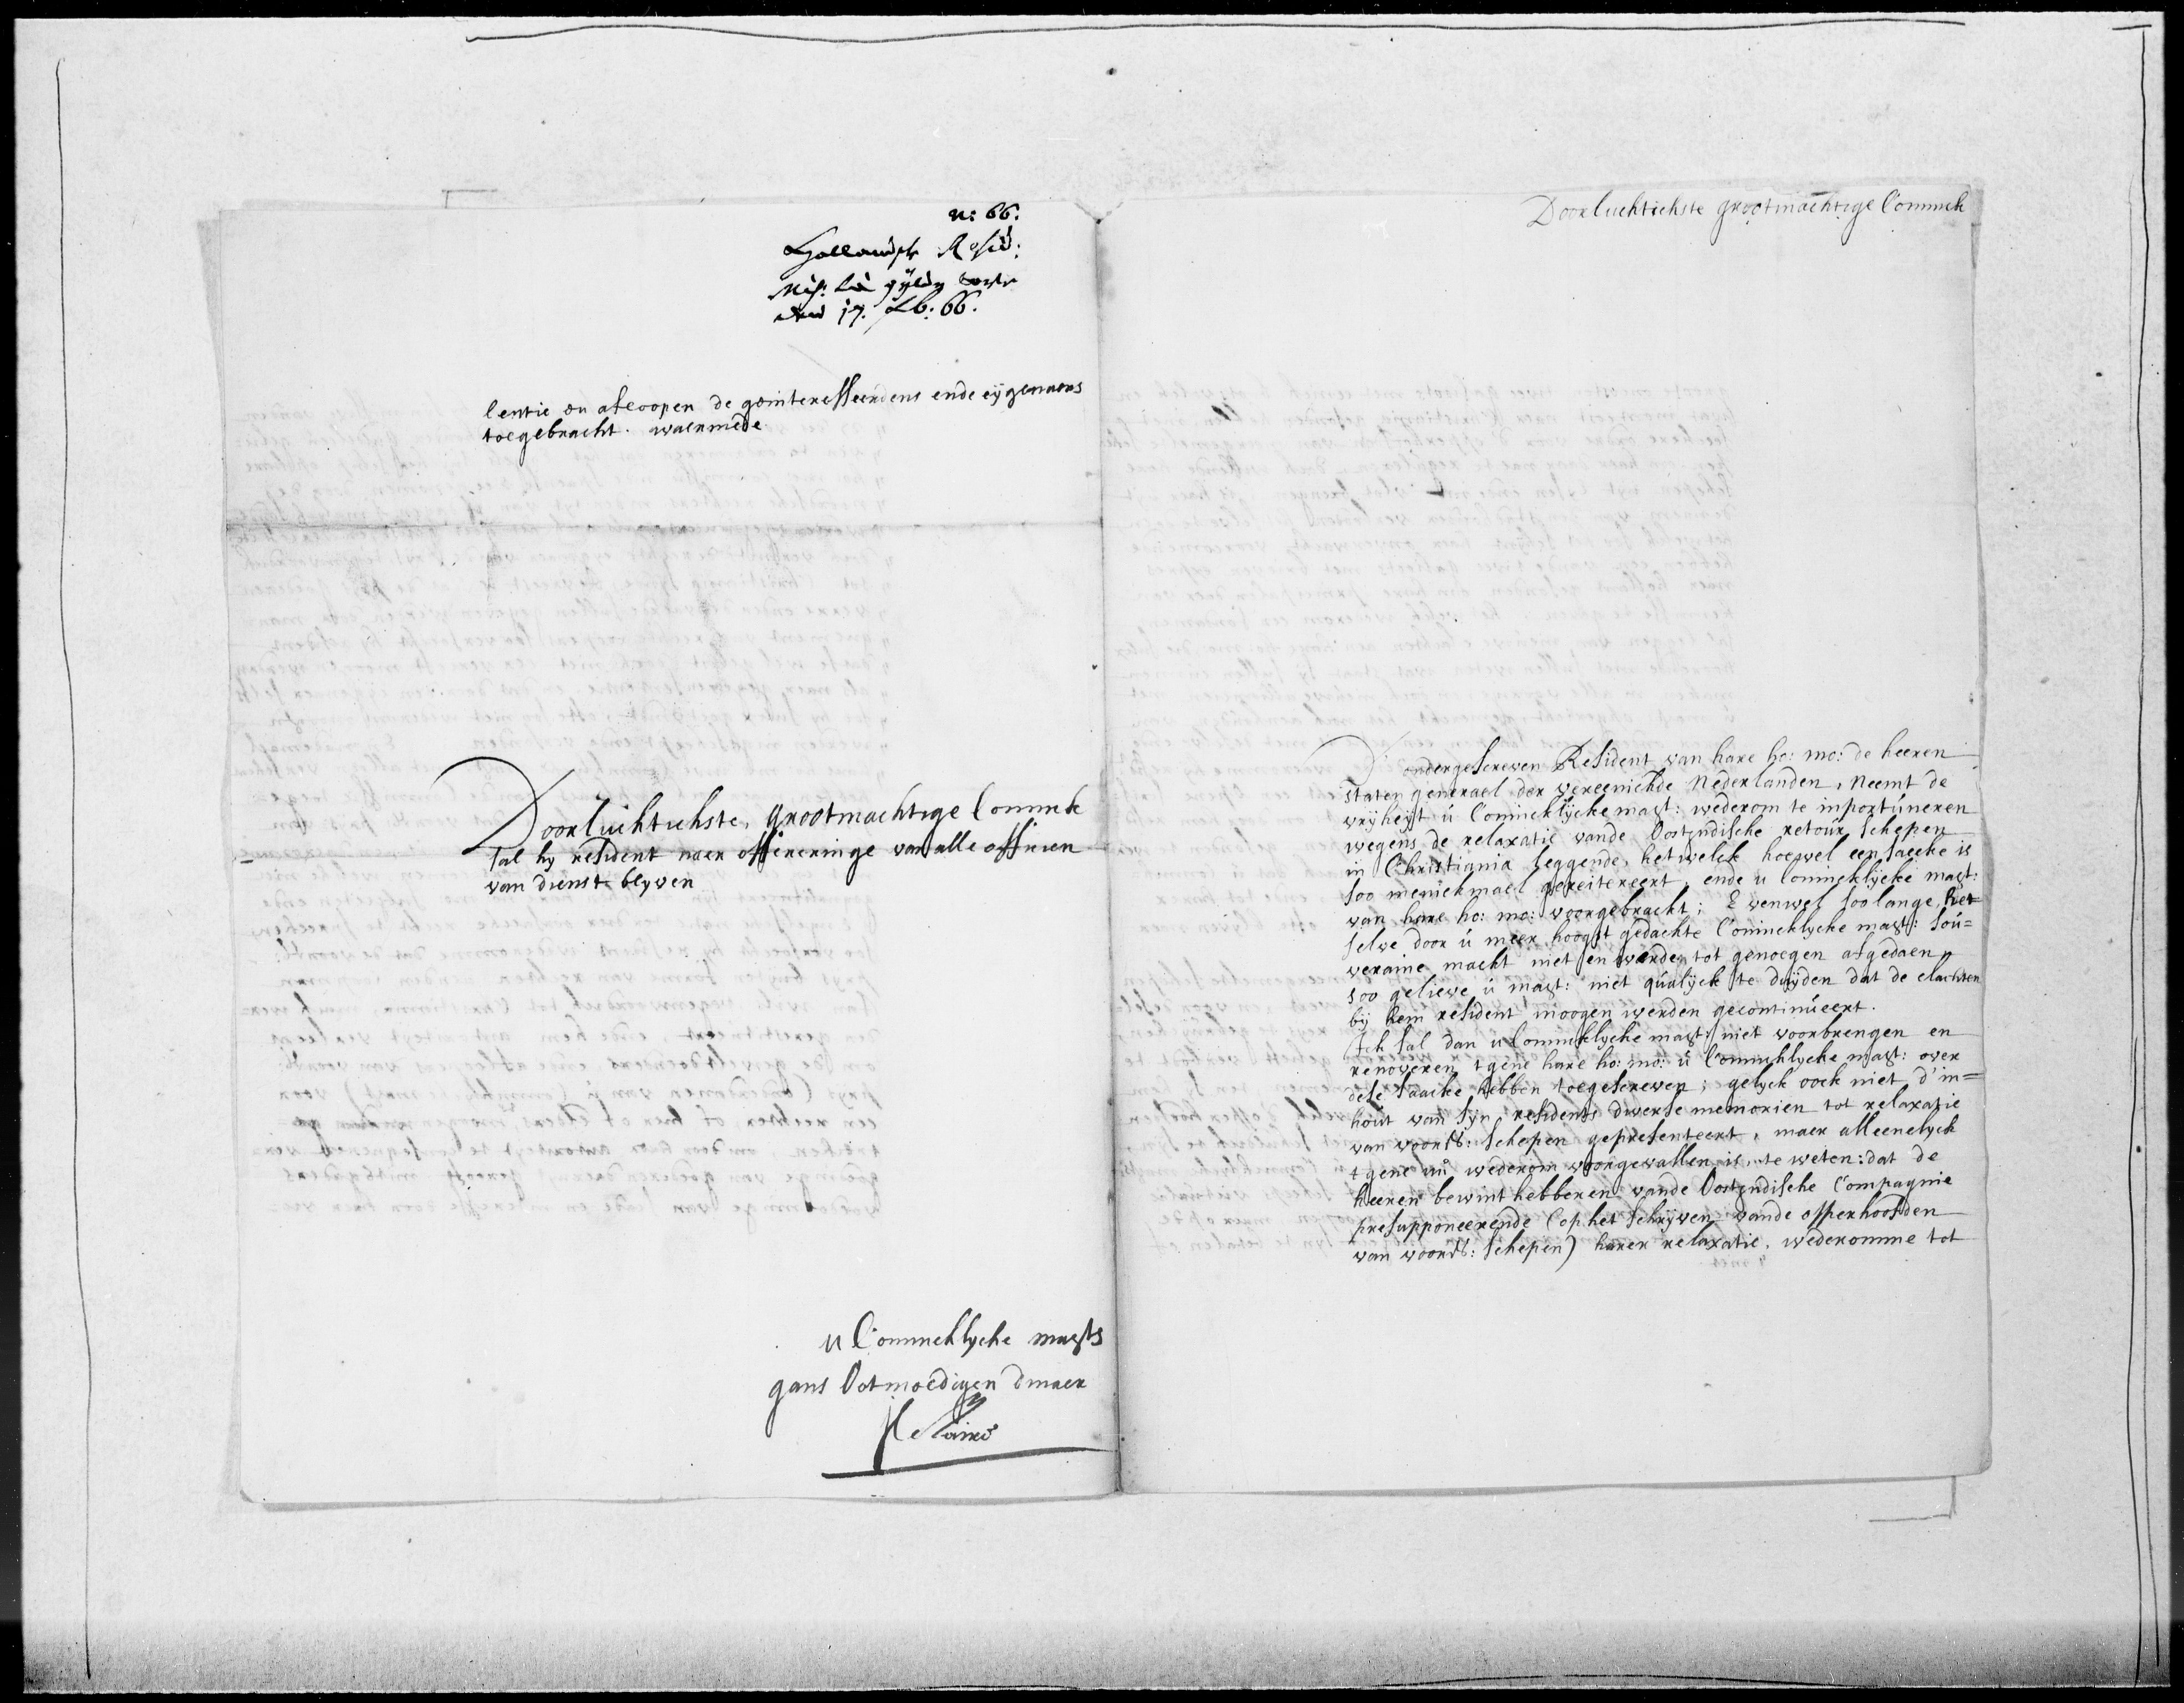 n: 66.
den 17. Feb: 66.
lentie en afloopen de geinteresseerdens ende eijgenaers
toegebracht. waermede
Doorluchtichste, grootmachtige Coninck
sal hy resident naer offereringe van alle officien
van dienst blyven
u Coninchlyche magts
gans Ootmoedigen dinaer
Doorluchtichste grootmachtige Coninck
D ondergescreven Resident van hare ho: mo: de heeren
staten generael der vereenichde Nederlanden, Neemt de
vrijheijt ú Conincklijcke magt: wederom te inportúneren
wegens de relaxatie vande Oostjndische retoúr schepen
in Christiania leggende, hetwelck hoewel een saecke is
soo menichmael gereitereert, ende u Conincklijcke magt:
van hare ho: mo: voorgebracht; Evenwel soo lange, het=
selve door ú meer hoogst gedachte Conincklycke magt: soú=
veraine macht niet en werde, tot genoegen afgedaen
soo gelieve ú magt: niet qúalijck te duijden dat de clachten
bij hem resident moogen werden gecontinúeert.
Ick sal dan u Conincklyche magt: niet voorbrengen en
renoveren tgene hare ho: mo: ú Coninchlyche magt: over
dese saacke hebben toegescreven; gelyck oock niet d'in=
hout van syn, residents diverse memorien tot relaxatie
van voorss: schepen gepresenteert, maer alleenelyck
tgene nú wederom voorgevallen is, te weten: dat de
heeren bewinthebberen vande Oostjndische Compagnie
presupponeerende (op het schrijven vande opperhoofden
van voorss: schepen) harer relaxatie, wederomme tot